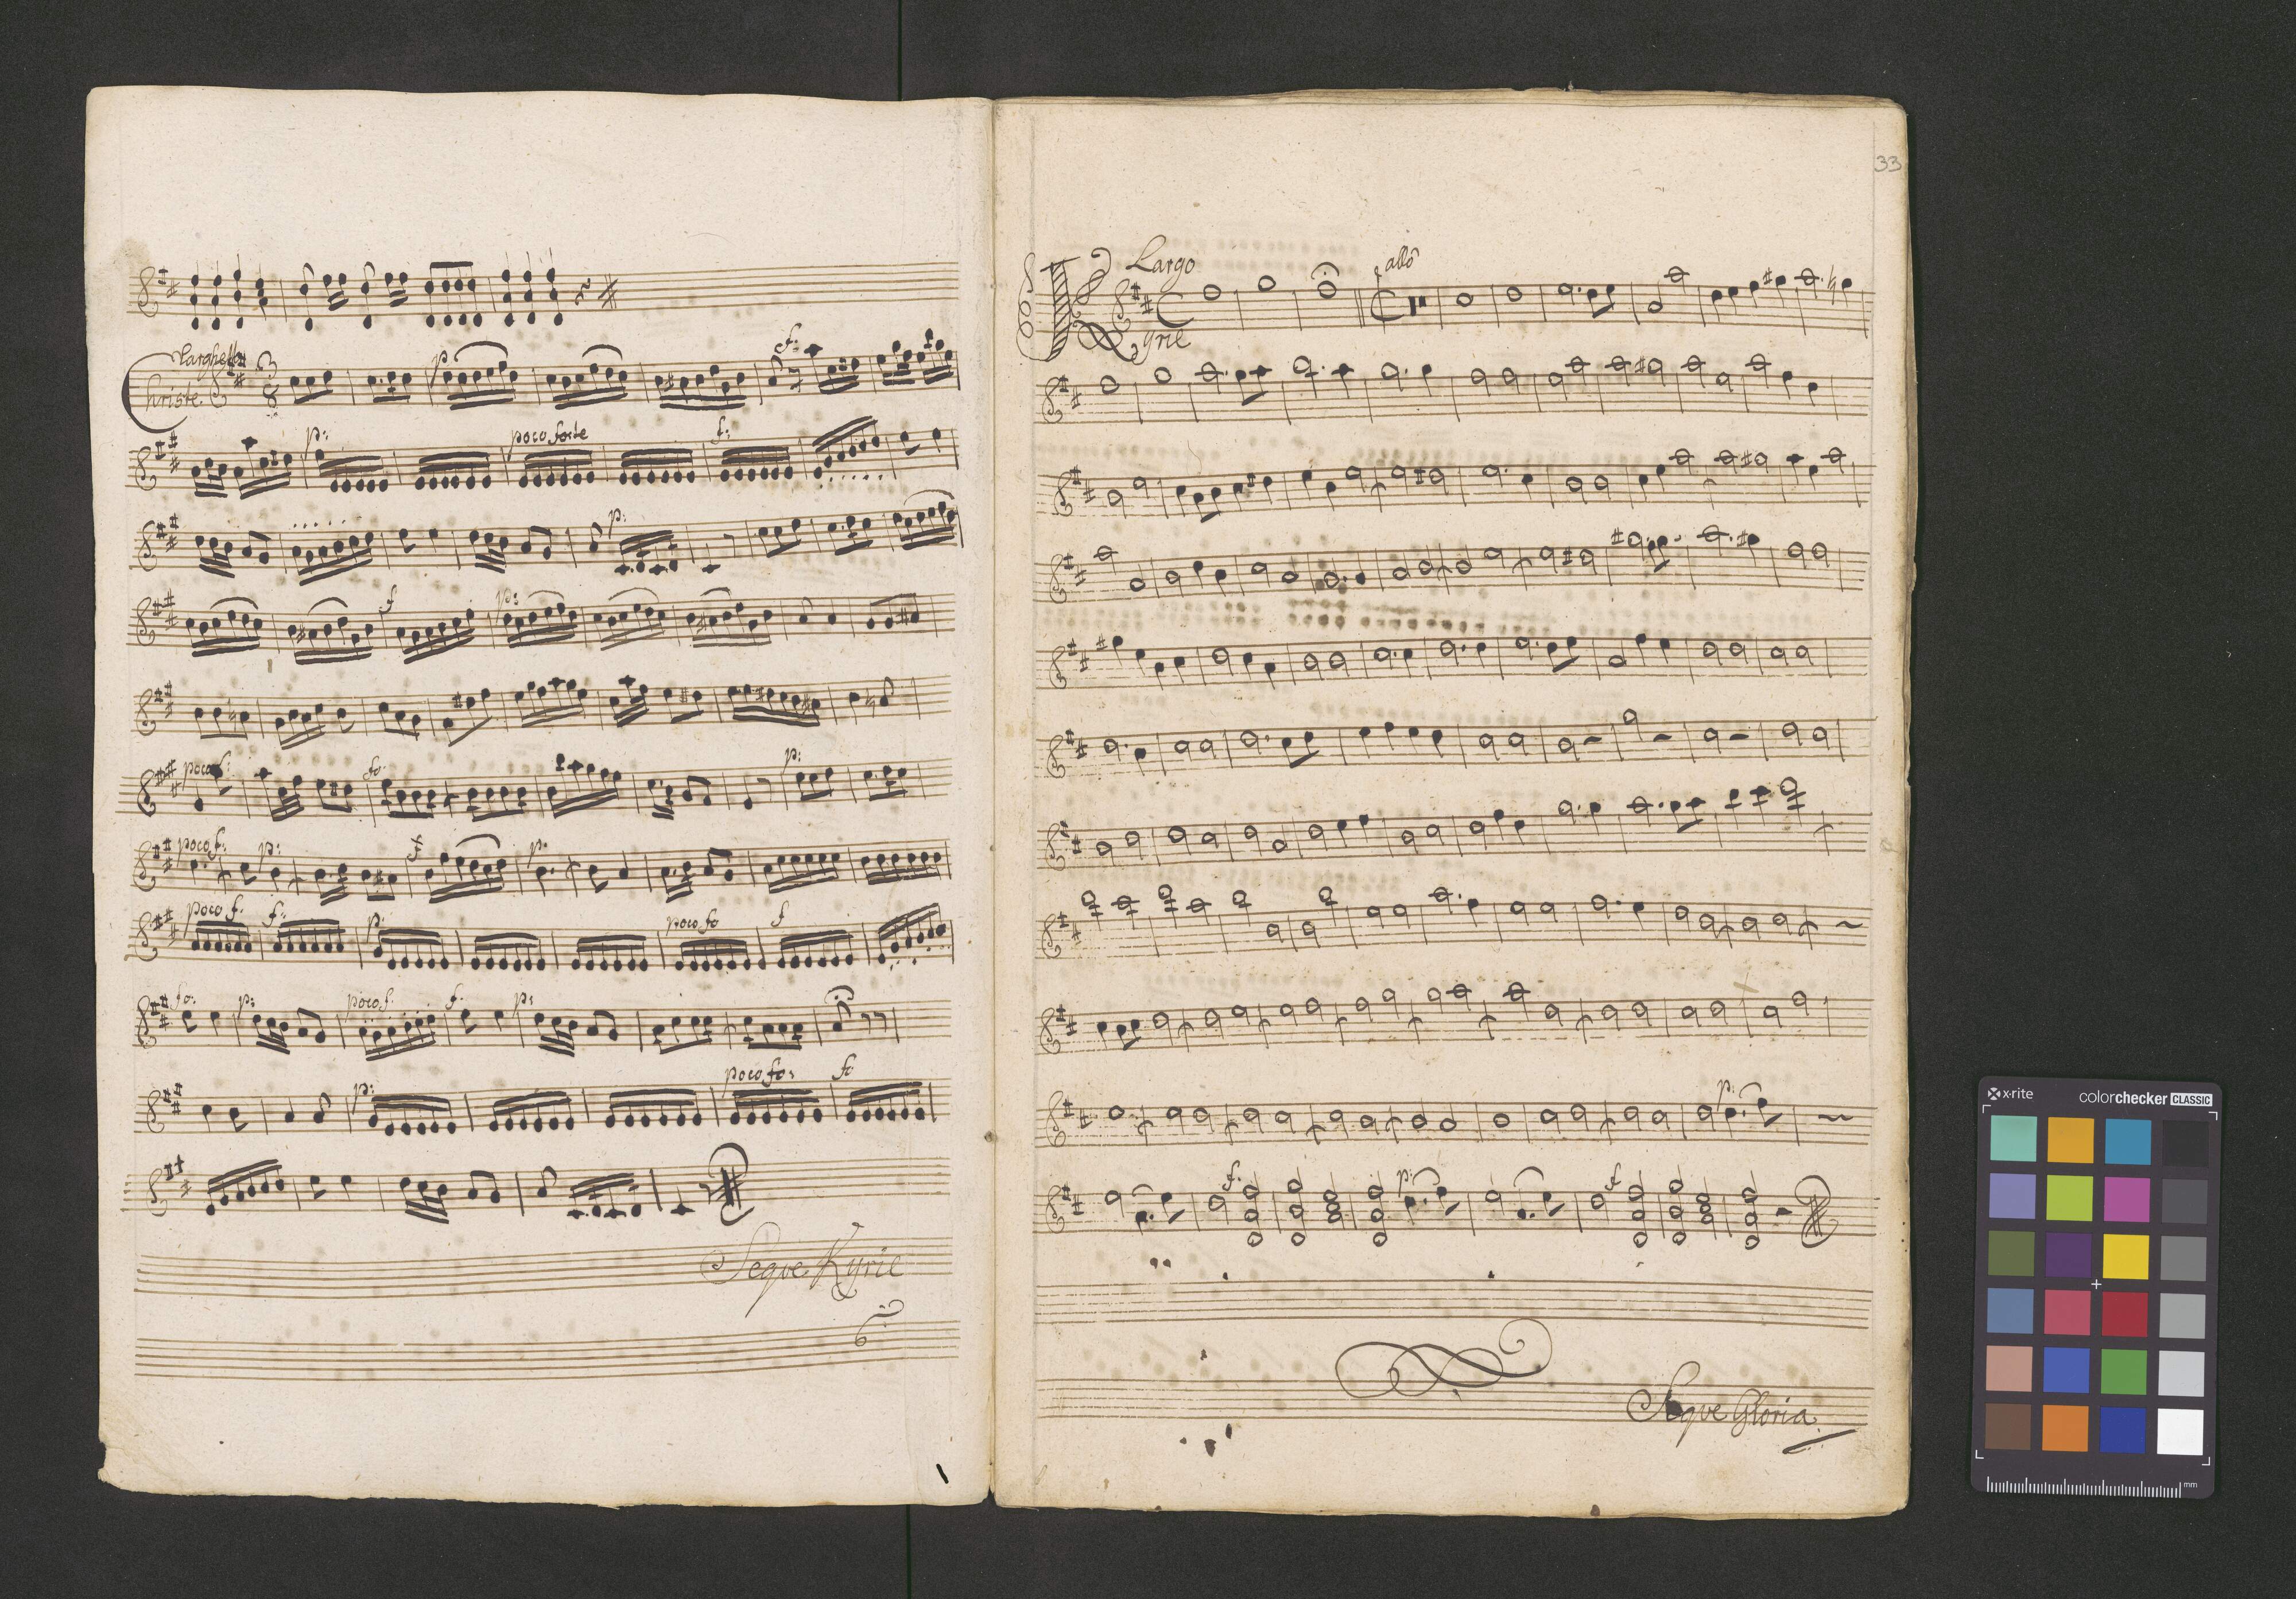 Larghetto
Christe
p
f:
p:
poco forte
f:
p:
f
p:
poco f:
fo.
p:
poco f:
p:
f
p.
poco f:
f:
p:
poco fo
f
fo:
p:
poco f.
f.
p:
p:
poco fo:
fo
Seqve Kyrie
33
Largo
allo
Kyrie
p:
f.
p:
f
Seqve Gloria
x-rite
colorchecker CLASSIC
mm